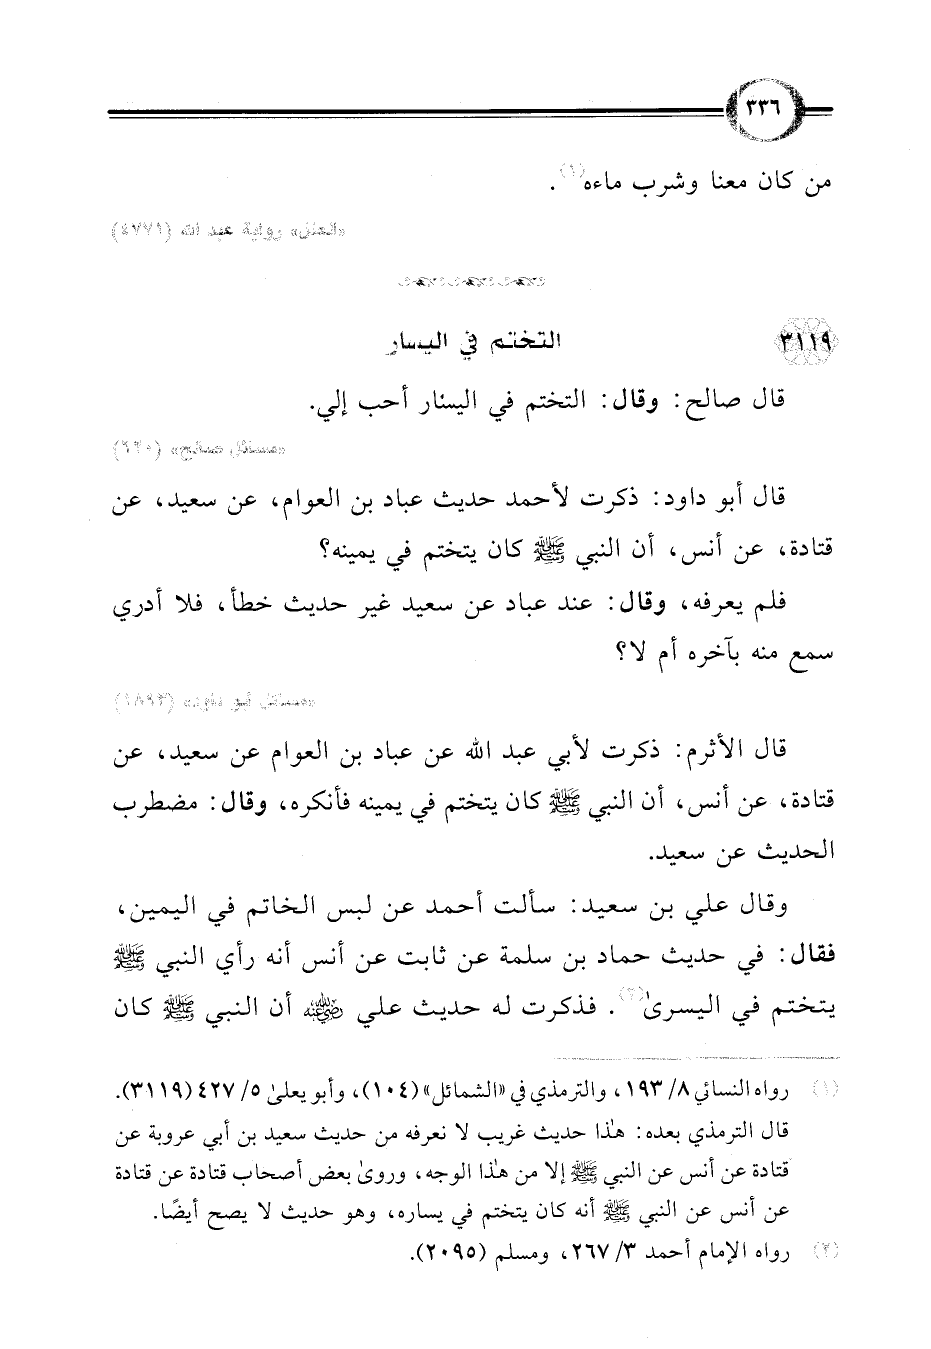 ٣٣٦
من كان معنا وشرب ماءه(١).
«العلل» رواية عبد الله (٤٧٧١)
٣١١٩ التختم في اليسار
قال صالح: وقال: التختم في اليسار أحب إلي.
«مسائل صالح» (٦٢٠)
قال أبو داود: ذكرت لأحمد حديث عباد بن العوام، عن سعيد، عن
قتادة، عن أنس، أن النبي ﷺ كان يتختم في يمينه؟
فلم يعرفه، وقال: عند عباد عن سعيد غير حديث خطأ، فلا أدري
سمع منه بآخره أم لا؟
«مسائل أبو داود» (١٨٩٣)
قال الأثرم: ذكرت لأبي عبد الله عن عباد بن العوام عن سعيد، عن
قتادة، عن أنس، أن النبي ﷺ كان يتختم في يمينه فأنكره، وقال: مضطرب
الحديث عن سعيد.
وقال علي بن سعيد: سألت أحمد عن لبس الخاتم في اليمين،
فقال: في حديث حماد بن سلمة عن ثابت عن أنس أنه رأي النبي ﷺ
يتختم في اليسرىٰ(٢). فذكرت له حديث علي رضي الله عنه أن النبي ﷺ كان
(١) رواه النسائي ٨/ ١٩٣، والترمذي في «الشمائل» (١٠٤)، وأبو يعلىٰ ٥/ ٤٢٧ (٣١١٩).
قال الترمذي بعده: هٰذا حديث غريب لا نعرفه من حديث سعيد بن أبي عروبة عن
قتادة عن أنس عن النبي ﷺ إلا من هٰذا الوجه، وروىٰ بعض أصحاب قتادة عن قتادة
عن أنس عن النبي ﷺ أنه كان يتختم في يساره، وهو حديث لا يصح أيضًا.
(٢) رواه الإمام أحمد ٣/ ٢٦٧، ومسلم (٢٠٩٥).